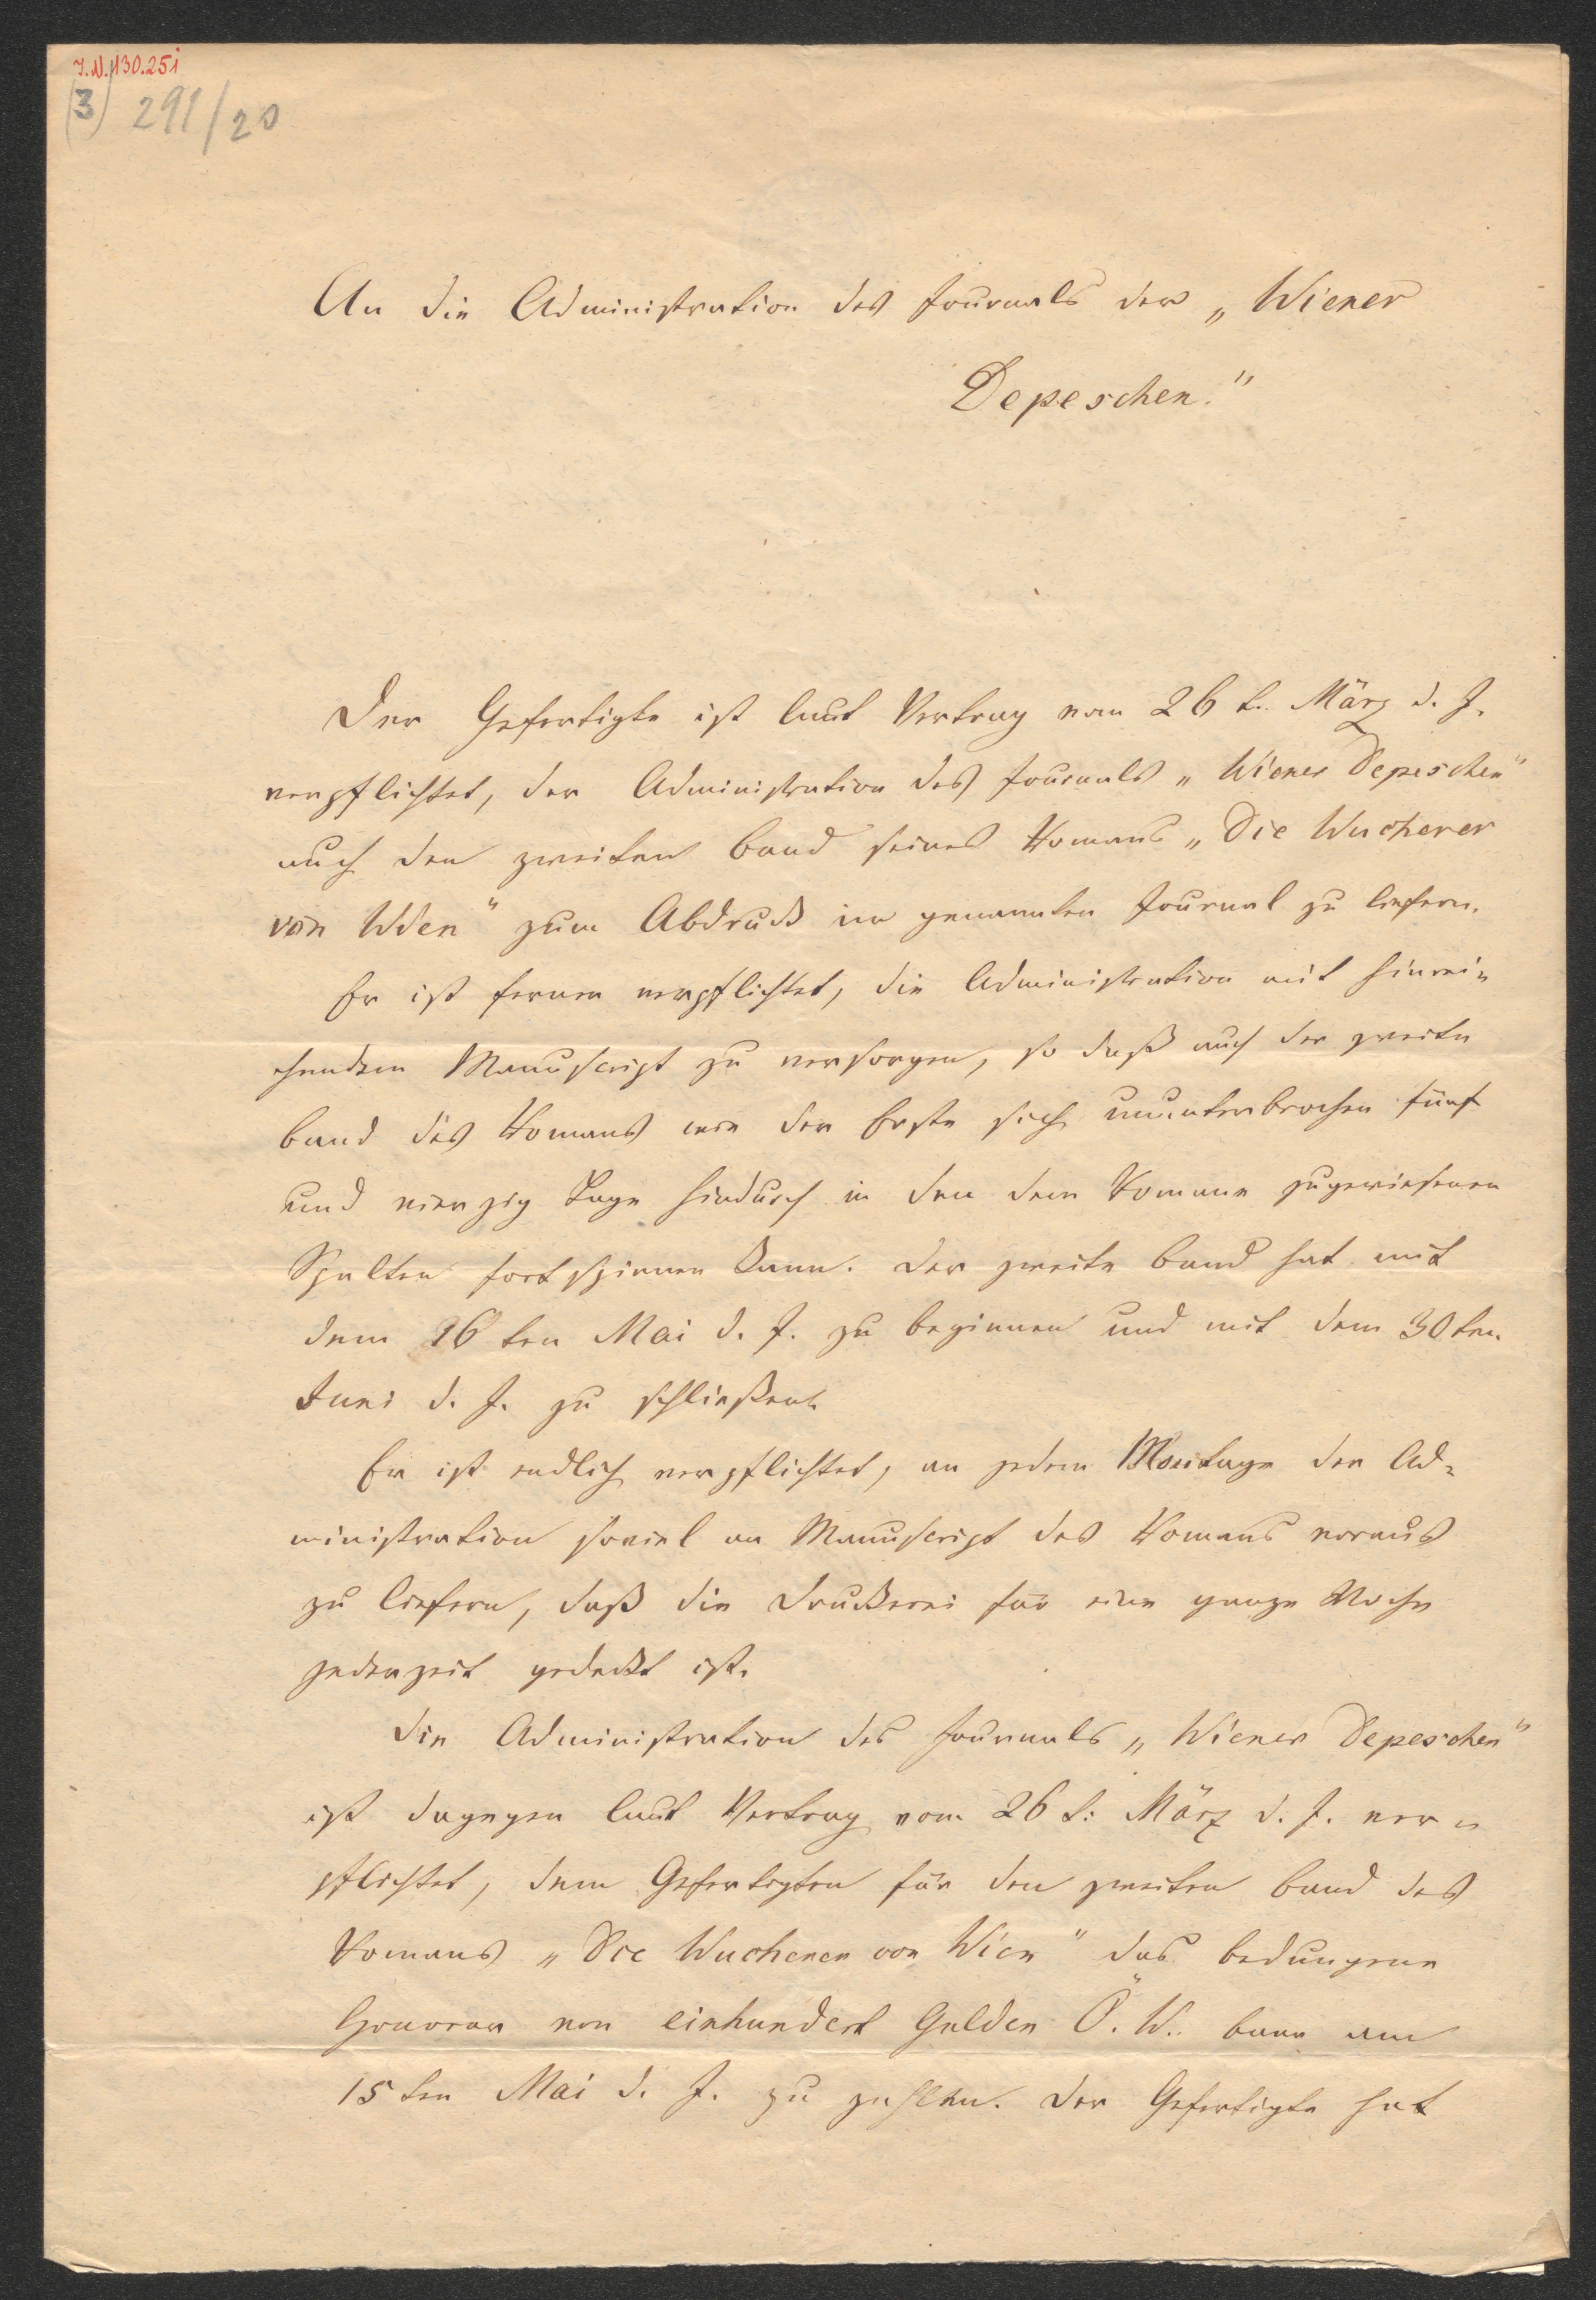 I.N. 130.251
(3) 291/20
An die Administration des Journals der „Wiener
Depeschen."
Der Gefertigte ist laut Vertrag vom 26 t. März d. J.
verpflichtet, der Administration des Journals „Wiener Depeschen"
auch den zweiten Band seines Romans „Die Wucherer
von Wien" zum Abdruck im genannten Journal zu liefern.
Er ist ferner verpflichtet, die Administration mit hinrei-
chendem Manuscript zu versorgen, so daß auch der zweite
Band des Romans wie der Erste sich ununterbrochen fünf
und vierzig Tage hindurch in den dem Romane zugewiesenen
Spalten fortspinnen kann. Der zweite Band hat mit
dem 16 ten Mai d. J. zu beginnen und mit dem 30 ten
Juni d. J. zu schließen.
Er ist endlich verpflichtet, an jedem Montage der Ad-
ministration soviel an Manuscript des Romans voraus
zu liefern, daß die Druckerei für eine ganze Woche
jederzeit gedeckt ist.
Die Administration des Journals „Wiener Depeschen"
ist dagegen laut Vertrag vom 26 t: März d. J. ver-
pflichtet, dem Gefertigten für den zweiten Band des
Romans „Die Wucherer von Wien" das bedungene
Honorar von einhundert Gulden Ö. W. baar am
15 ten Mai d. J. zu zahlen. Der Gefertigte hat